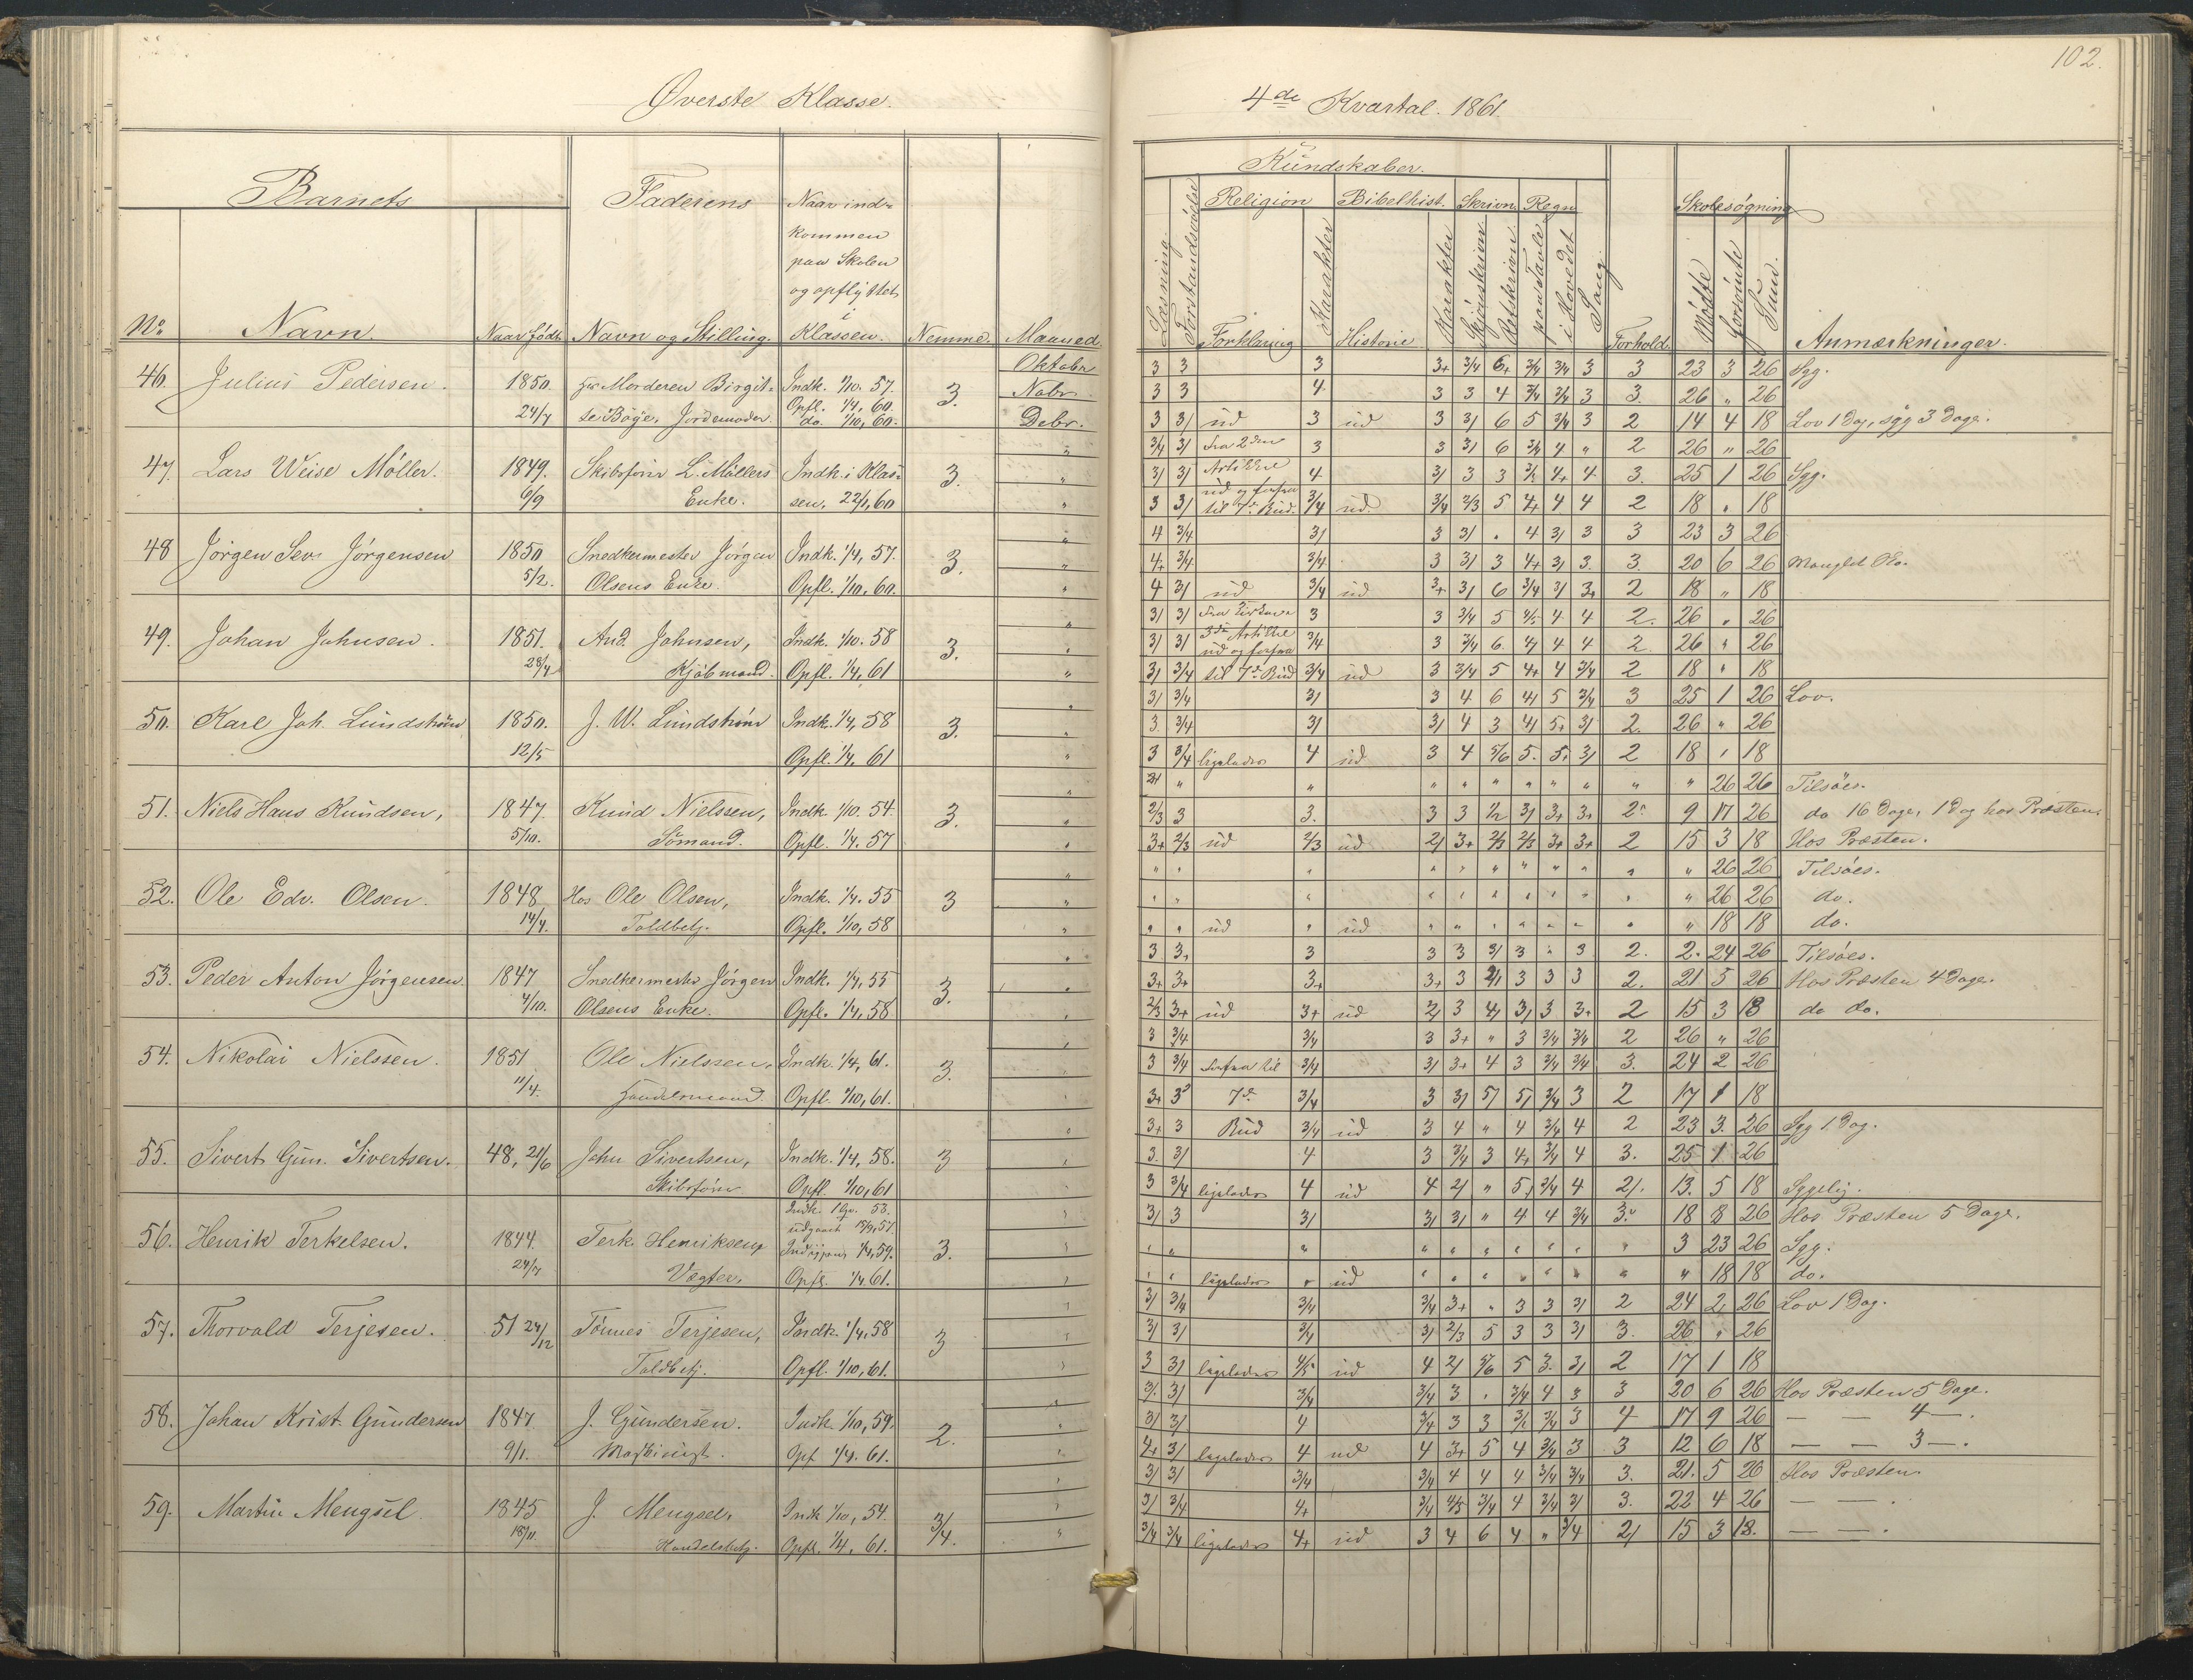 102.
Øverste Klasse.
4de Kvartal. 1861.
Barnets
Faderens
Naar ind-
kommen
paa Skolen
og opflyttet
i
Klassen.
No
Navn.
Naar født.
Navn og Stilling.
Nemme.
Maaned.
Kundskaber.
Læsning.
Forstandsøvelse
Religion
Forklaring
Karakter
Bibelhist.
Historie
Karakter
Skrivn.
Skjønskriv.
Retskrivn.
Regn
paa Tavle
i Hovedet
Sang.
Forhold.
Skolesøgning
Mødte
forsømte
Sum.
Anmærkninger.
46. Julius Pedersen. 1850. Moderen Birgit- Indk. 1/10. 57. 3. Oktobr.
24/7 te Bøye, Jordemoder. Opfl. 1/4, 60. Nobr.
do. 1/10, 60. Debr.
3 3 3 3+ 3/4 6+ 3/4 3/4 3 3 23 3 26 Syg.
3 3 4 3 3 4 3/4 3/4 3 3. 26 " 26
3 3/ ud 3 ud 3 3/ 6 5 3/4 3 2 14 4 18 Lov 1 Dag, syg 3 Dage.
47. Lars Weise Møller. 1849. Skibsfører L. Møllers Indk. i Klas- 3.
6/9 Enke. sen, 22/1, 60
3/4 3/ fra 2den 3 3 3/ 6 3/4 4 " 2 26 " 26
3/ 3/ Artikkel 4 3/ 3 3 3/4 4+ 4 3. 25 1 26 Syg.
3 3/ ud og forfra til 7de Bud. 3/4 ud 3/4 2/3 5 4+ 4 4 2 18 " 18
48 Jørgen Sev. Jørgensen 1850 Snedkermester Jørgen Indk. 1/4, 57. 3.
5/2. Olsens Enke. Opfl. 1/10, 60.
4 3/4 3/ 3 3/ " 4 3/ 3 3 23 3 26
4+ 3/4 3/4 3 3/ 3 4+ 3/ 3. 3. 20 6 26 Manglet Sko.
4 3/ ud 3/4 ud 3+ 3/ 6 3/4 3/ 3+ 2 18 " 18
49. Johan Johnsen. 1851. And. Johnsen, Indk. 1/10. 58 3.
28/4 Kjøbmand. Opfl. 1/4, 61
3/ 3/ 3 3 3/4 5 4/5 4 4 2. 26 " 26
3/ 3/ 3die Artikkel ud og forfra 3/4 3 3/4 6. 4/ 4 4 2. 26 " 26
3/ 3/4 til 7de Bud 3/4 ud 3 3/4 5 4+ 4 3/4 2 18 " 18
50. Karl Joh. Lundstrøm 1850. J. W. Lundstrøm Indk. 1/4, 58 3.
12/5 Opfl. 1/4, 61
3/ 3/4 3/ 3 4 6 4/ 5 3/4 3 25 1 26 Lov.
3. 3/4 3/ 3/ 4 3 4/ 5+ 3/ 2. 26 " 26
3 3/4 ligeledes 4 ud 3 4 5/6 5. 5+ 3/ 2 18 " 18
51. Niels Hans Knudsen, 1847. Knud Nielssen, Indk 1/10. 54. 3.
5/10. Sømand. Opfl. 1/4. 57
" " " " " " " " " " " 26 26 Tilsøes.
2/3 3 3. 3 3 1/2 3/ 3+ 3+ 2. 9 17 26 do 16 Dage, 1 Dag hos Præsten.
3+ 2/3 ud 2/3 ud 2/ 3+ 2/3 2/3 3+ 3+ 2 15 3 18 Hos Præsten.
52. Ole Edv. Olsen. 1848 Hos Ole Olsen, Indk. 1/4. 55 3
14/4. Toldbetj. Opfl. 1/10, 58
" " " " " " " " " " " 26 26 Tilsøes.
" " " " " " " " " " " 26 26 do.
" " ud " ud " " " " " " " " 18 18 do.
53. Peder Anton Jørgensen. 1847 Snedkermester Jørgen Indk. 1/4, 55 3.
4/10. Olsens Enke. Opfl. 1/4, 58
3 3+ 3 3 3 3/ 3 " 3 2. 2. 24 26 Tilsøes.
3+ 3+ 3+ 3+ 3 2/ 3 3 3 2. 21 5 26 Hos Præsten 4 Dage.
2/3 3+ ud 3+ ud 2/ 3 4/ 3/ 3 3+ 2 15 3 18 do do.
54. Nikolai Nielssen. 1851 Ole Nielssen, Indk. 1/4, 61. 3.
11/4. Handelsmand. Opfl. 1/10, 61.
3 3/4 3/4 3 3+ " 3 3/4 3/4 2 26 " 26
3 3/4 forfra til 3/4 3/ 3+ 4 3 3/4 3/4 3. 24 2 26
3+ 3 7de 3/4 3 3/ 5/ 5/ 3/4 3 2 17 1 18
55. Sivert Gun. Sivertsen. 48, 21/6 John Sivertsen, Indk. 1/4, 58. 3
Skibsfører Opfl. 1/10, 61
3+ 3 Bud 3/4 ud 3 4 " 4 3/4 4 2 23 3. 26 Syg 1 Dag.
3. 3/ 4 3 3/4 3 4+ 3/4 4 3. 25 1 26
3 3/4 ligeledes 4 ud 4 2/ " 5+ 3/4 4 2/. 13. 5 18 Sygelig.
56. Henrik Terkelsen. 1844. Terk. Henriksen, Indk. 53. 3.
24/7 Vægter. udgaaet 15/9, 57.
Indigjen 1/4, 59.
Opfl. 1/4, 61.
3/ 3 3/ 3/ 3/ " 4 4 3/4 3. 18 8 26 Hos Præsten 5 Dage.
" " " " " " " " " " 3 23 26 Syg.
" " ligeledes " ud " " " " " " " " 18 18 do.
57. Thorvald Terjesen. 51 24/12 Tønnes Terjesen, Indk. 1/4, 58 3
Toldbetj. Opfl. 1/10, 61.
3/ 3/4 3/4 3/4 3+ " 3 3 3/ 2 24 2 26 Lov 1 Dag.
3/ 3/ 3/4 3/ 2/3 5 3 3 3/ 3. 26 " 26
3 3/ ligeledes 4/5 ud 4 2/ 5/6 5 3. 3/ 2 17 1 18
58. Johan Krist. Gundersen 1847 J. Gundersen. Indk. 1/10, 59. 2.
9/1. Maskinist. Opf 1/4. 61.
3/. 3/ 3/4 3/4 3 " 3/4 4 3 3 20 6 26 Hos Præsten 5 Dage.
3/ 3/ 4 3/4 3 3 3/. 3/4 3 4 17 9 26 — — 4 —.
4+ 3/ ligeledes 4 ud 4 3+ 5 4 3/4 3 3 12 6 18 — — 3 —.
59. Martin Mengsel. 1845 J. Mengsel, Indk 1/10, 54. 3/4.
18/11. Handelsbetj. Opfl. 1/4. 61.
3/ 3/ 3/4 3/4 4 4 4 3/4 3/4 3. 21. 5 26 Hos Præsten.
3/ 3/4 4+ 3/4 4/5 3/4 4 3/4 3/ 3. 22 4 26 — — .
3/4 3/4 ligeledes 4+ ud 3 4 6 4 " 3/4 2/ 15 3 18. — — .